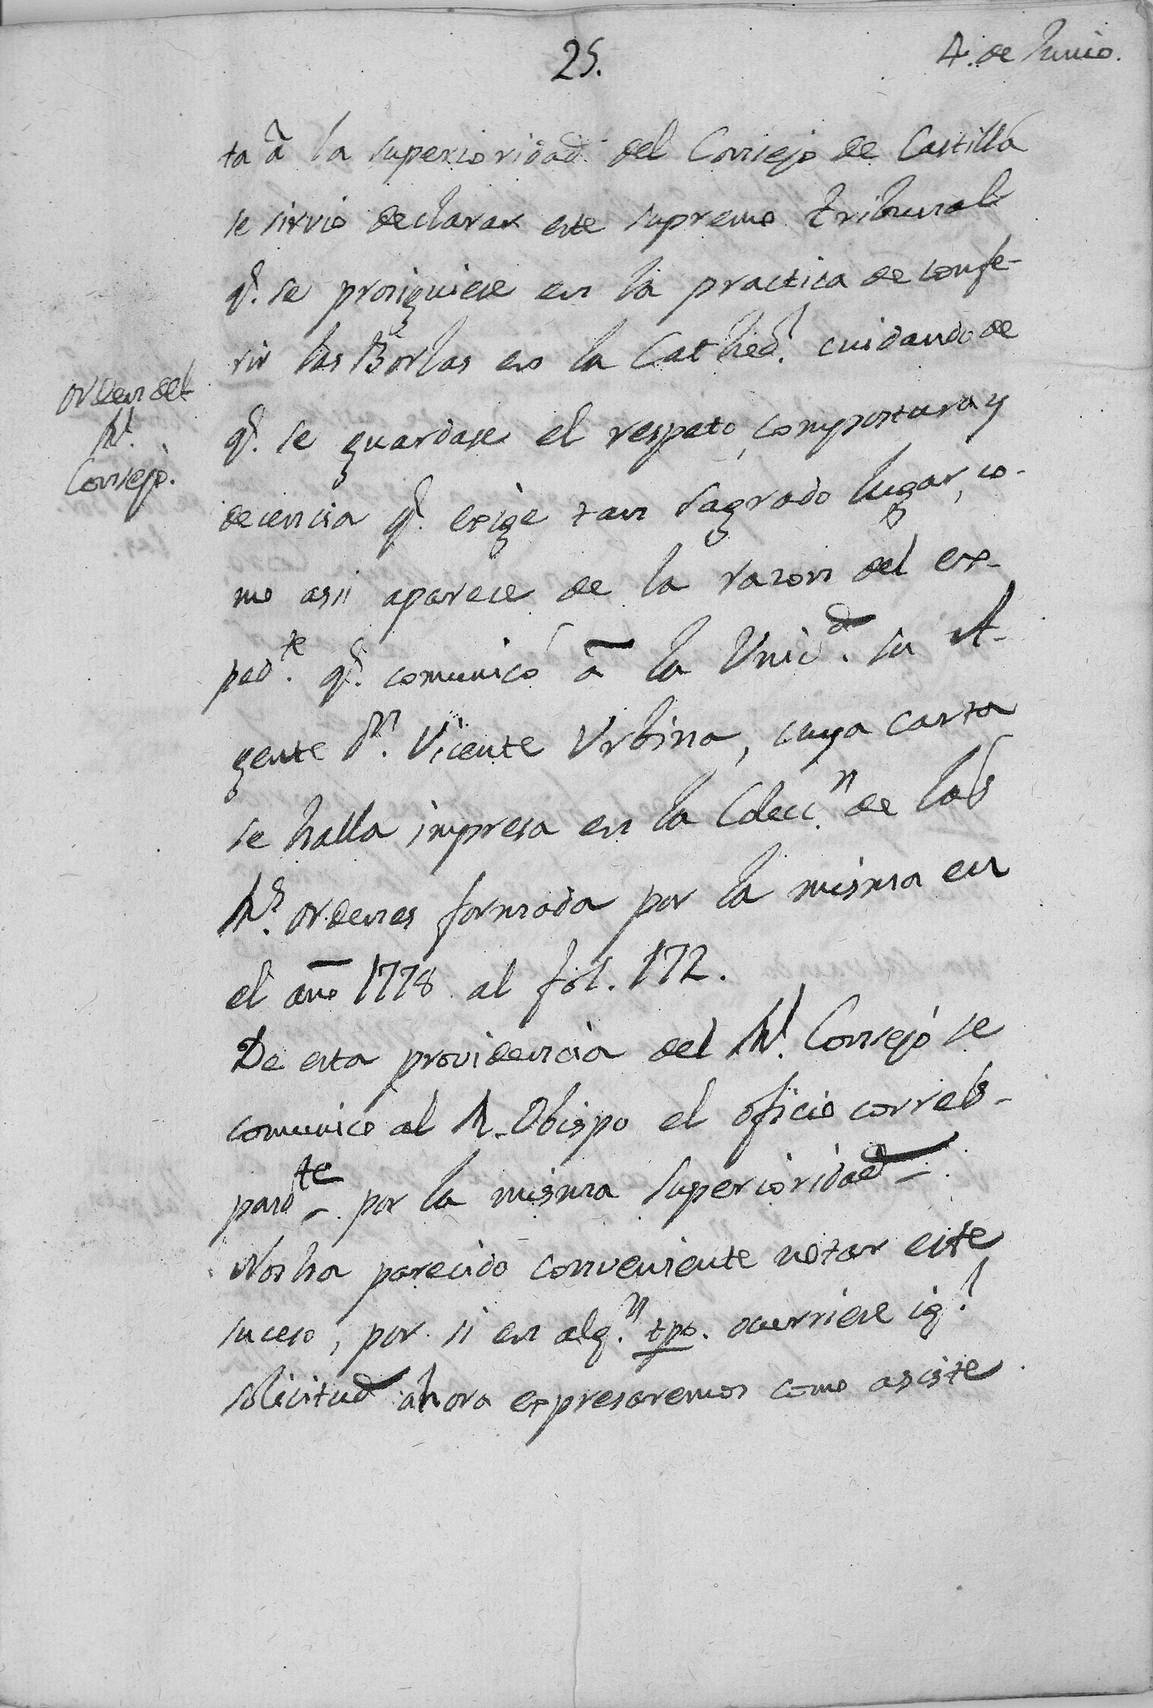 25.
4. de Junio.
ta â la superioridad del Consejo de Castilla
se sirvio declarar este supremo tribunal
q.e se prosiguiese en la practica de confe-
rir las Borlas en la Cathed.l cuidando de
orden del
R.l
Consejo.
q.e se guardase el respeto, compostura y
decencia q.e exige tan sagrado lugar, co-
mo asii aparece de la razon del ex-
ped.te q.e comunicó â la Univ.d su A-
gente D.n Vicente Urbina, cuya carta
se halla impresa en la Colecc.n de las
R.s ordenes formada por la misma en
el año 1778 al fol. 172.
De esta providencia del R.l Consejo se
comunico al R. Obispo el oficio corres-
pond.te por la misma superioridad.
Nos ha parecido conveniente notar este
suceso, por si en alg.n tpo. ocurriere ig.l
solicitud ahora expresaremos como asiste